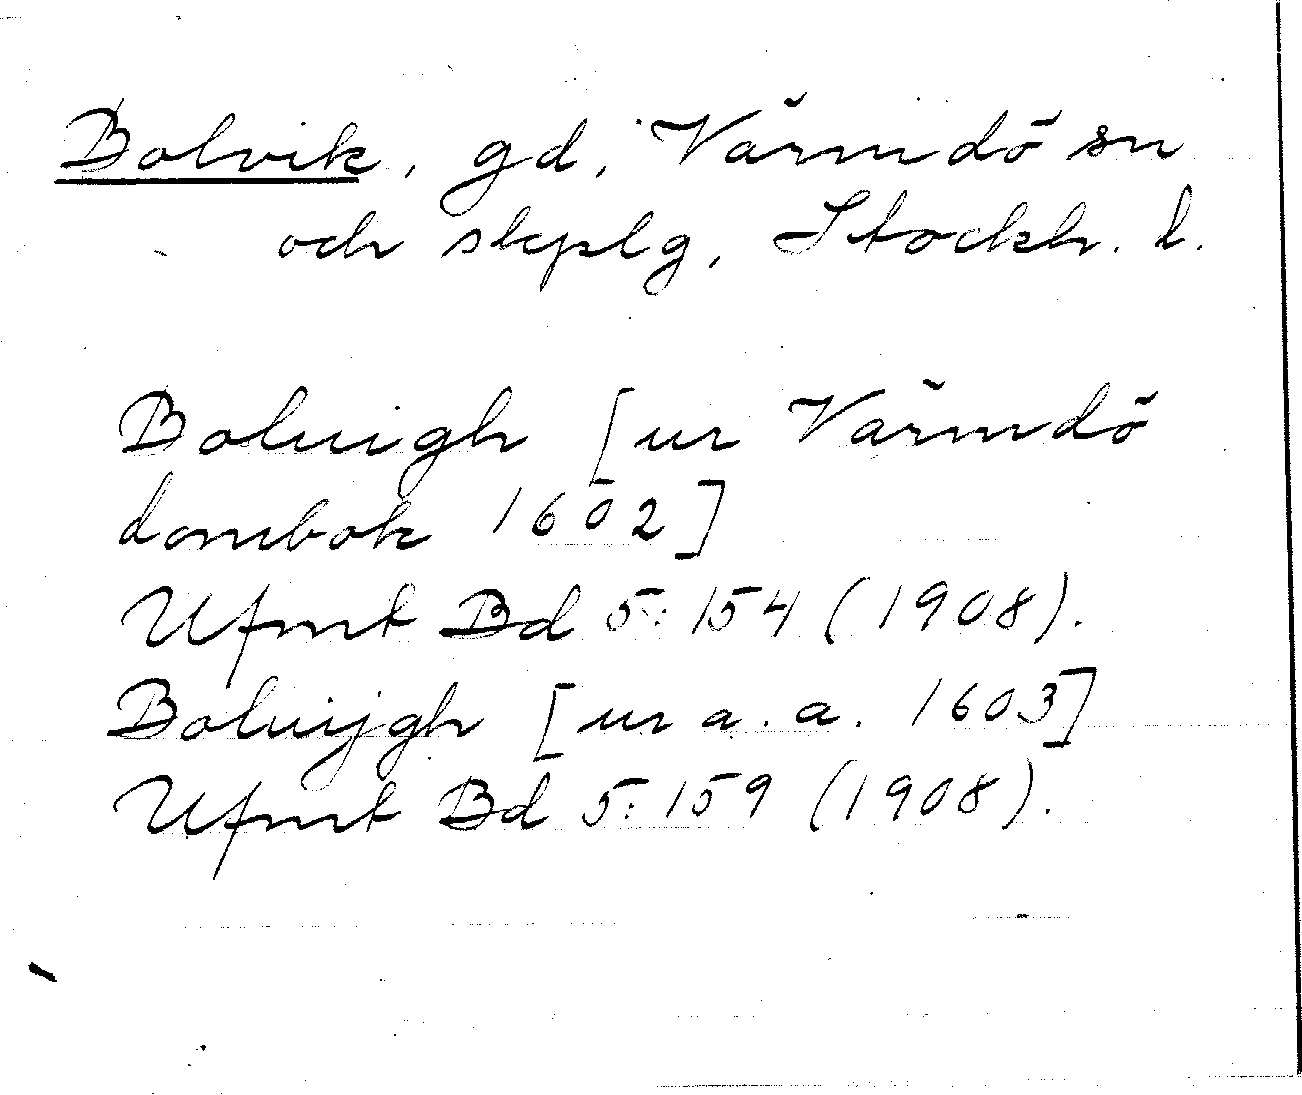 Bolvik, gd, Värmdö sn
och skplg, Stockh. l.
Boluigh [ur Värmdö
dombok 1602]
Ufmt Bd 5:154 (1908).
Boluijgh [ur a.a. 1603]
Ufmt Bd 5:159 (1908).